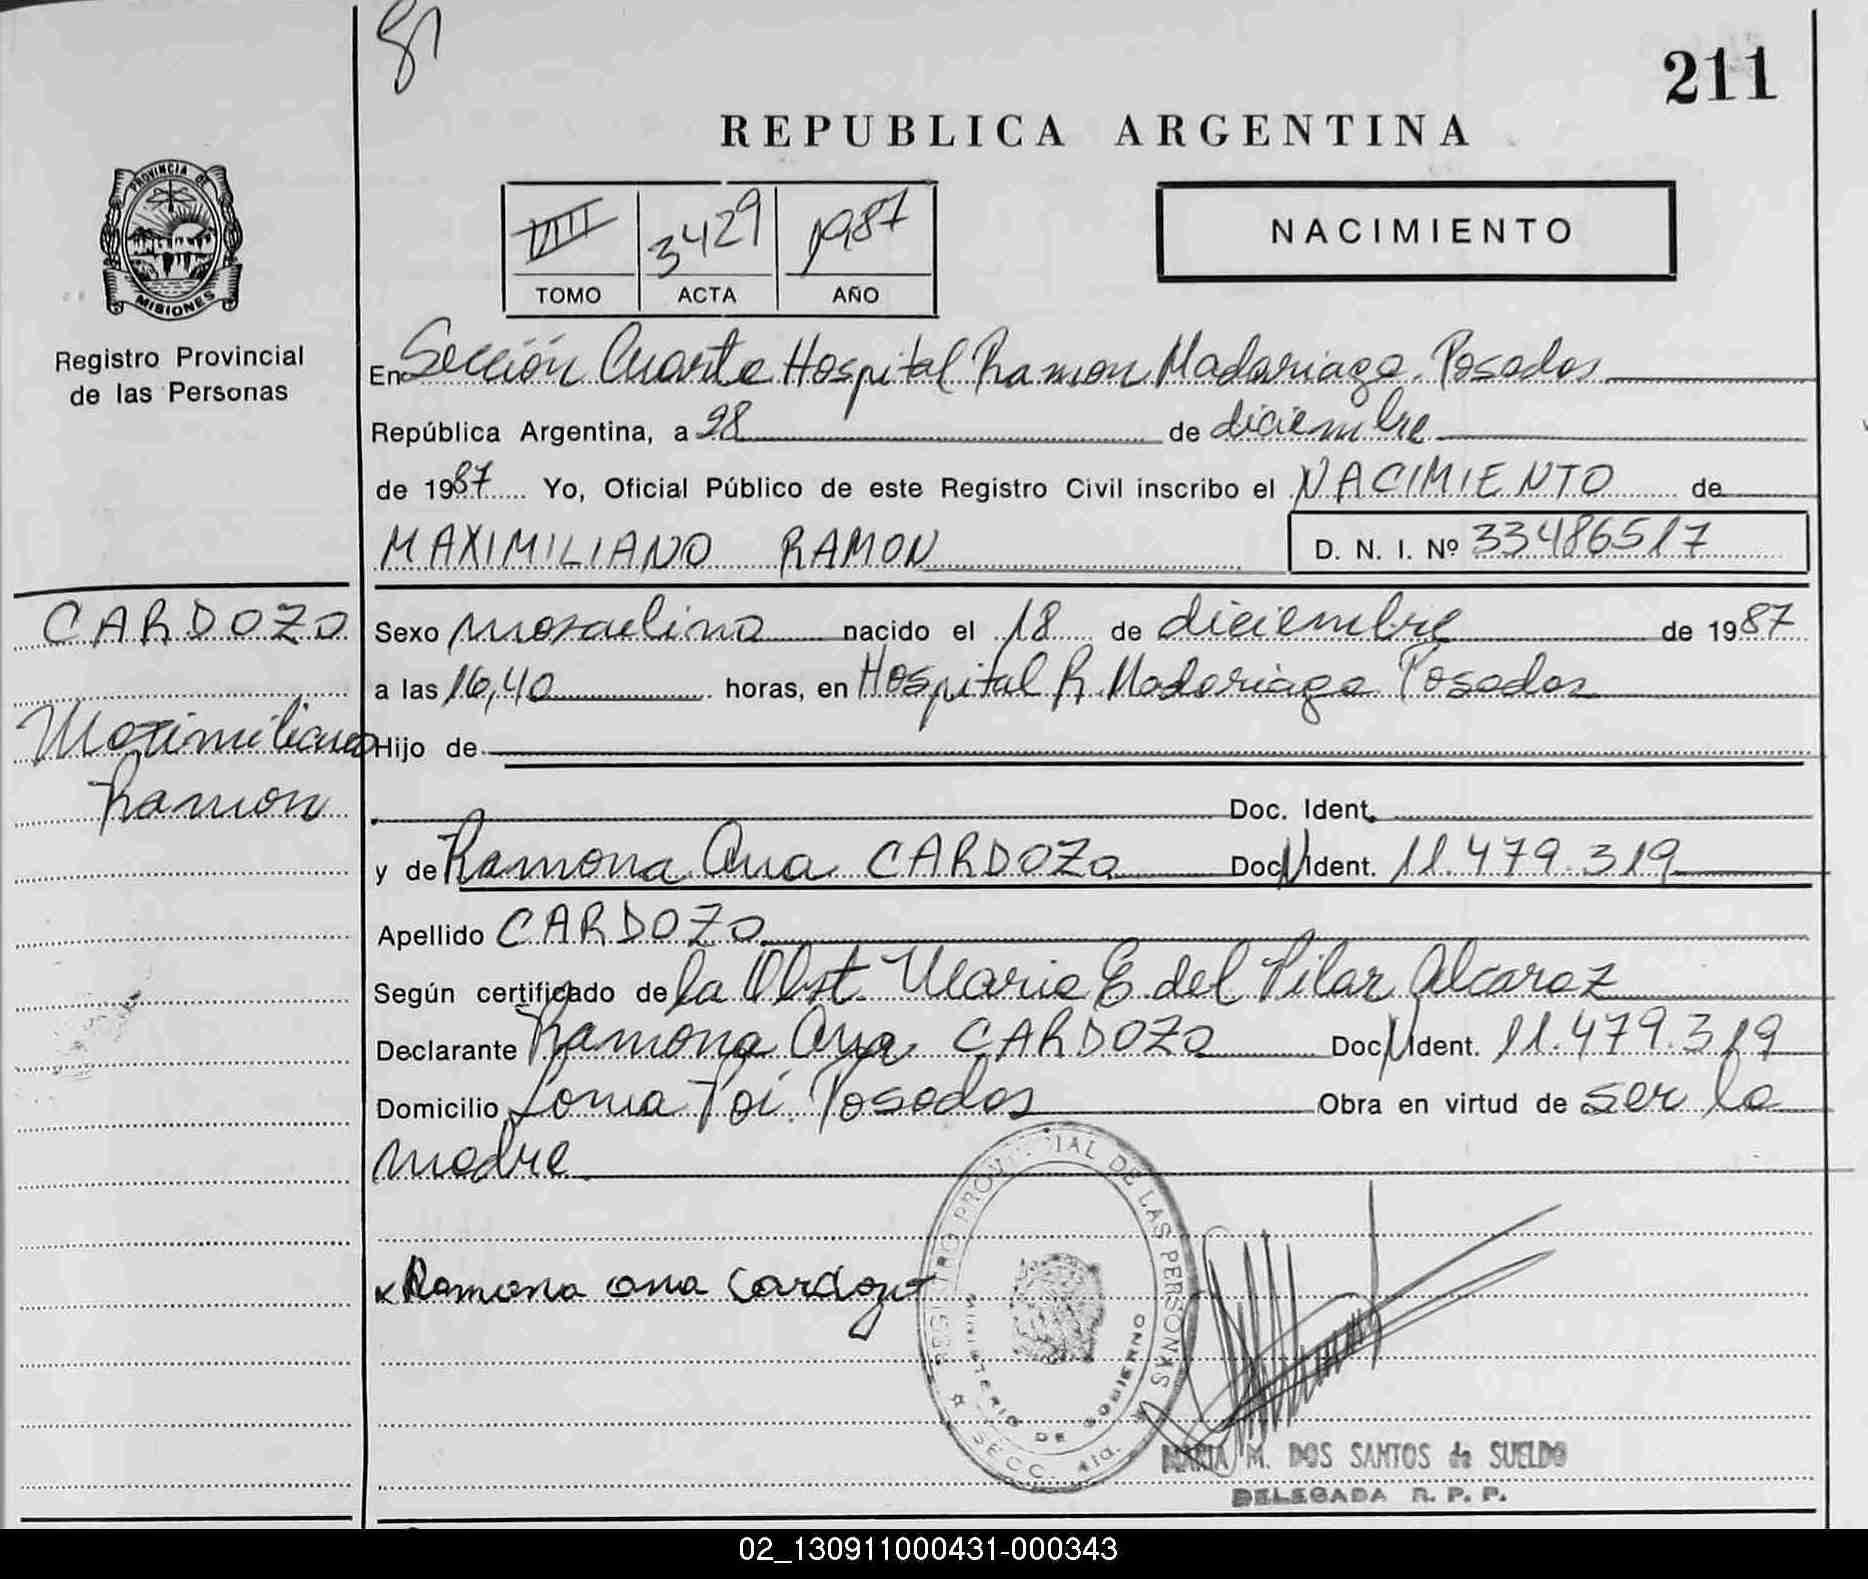 81
211
REPUBLICA ARGENTINA
PROVINCIA DE MISIONES
Registro Provincial
de las Personas
VIII 3429 1987
TOMO ACTA AÑO
NACIMIENTO
En Sección Cuarta Hospital Ramon Madariaga. Posadas
República Argentina, a 28 de diciembre
de 1987 Yo, Oficial Público de este Registro Civil inscribo el NACIMIENTO de
MAXIMILIANO RAMON D. N. I. Nº 33486517
CARDOZO
Maximiliano
Ramon
Sexo masculino nacido el 18 de diciembre de 1987
a las 16,40 horas, en Hospital R. Madariaga Posadas
Hijo de
Doc. Ident.
y de Ramona Ana CARDOZO Doc N Ident. 11.479.319
Apellido CARDOZO
Según certificado de la Obst. Maria E. del Pilar Alcaraz
Declarante Ramona Ana CARDOZO Doc N Ident. 11.479.319
Domicilio Loma Poi. Posadas Obra en virtud de ser la
madre
Ramona ana Cardozo
REGISTRO PROVINCIAL DE LAS PERSONAS
MINISTERIO DE GOBIERNO
SECC. 4ta.
MARIA M. DOS SANTOS de SUELDO
DELEGADA R. P. P.
02_130911000431-000343